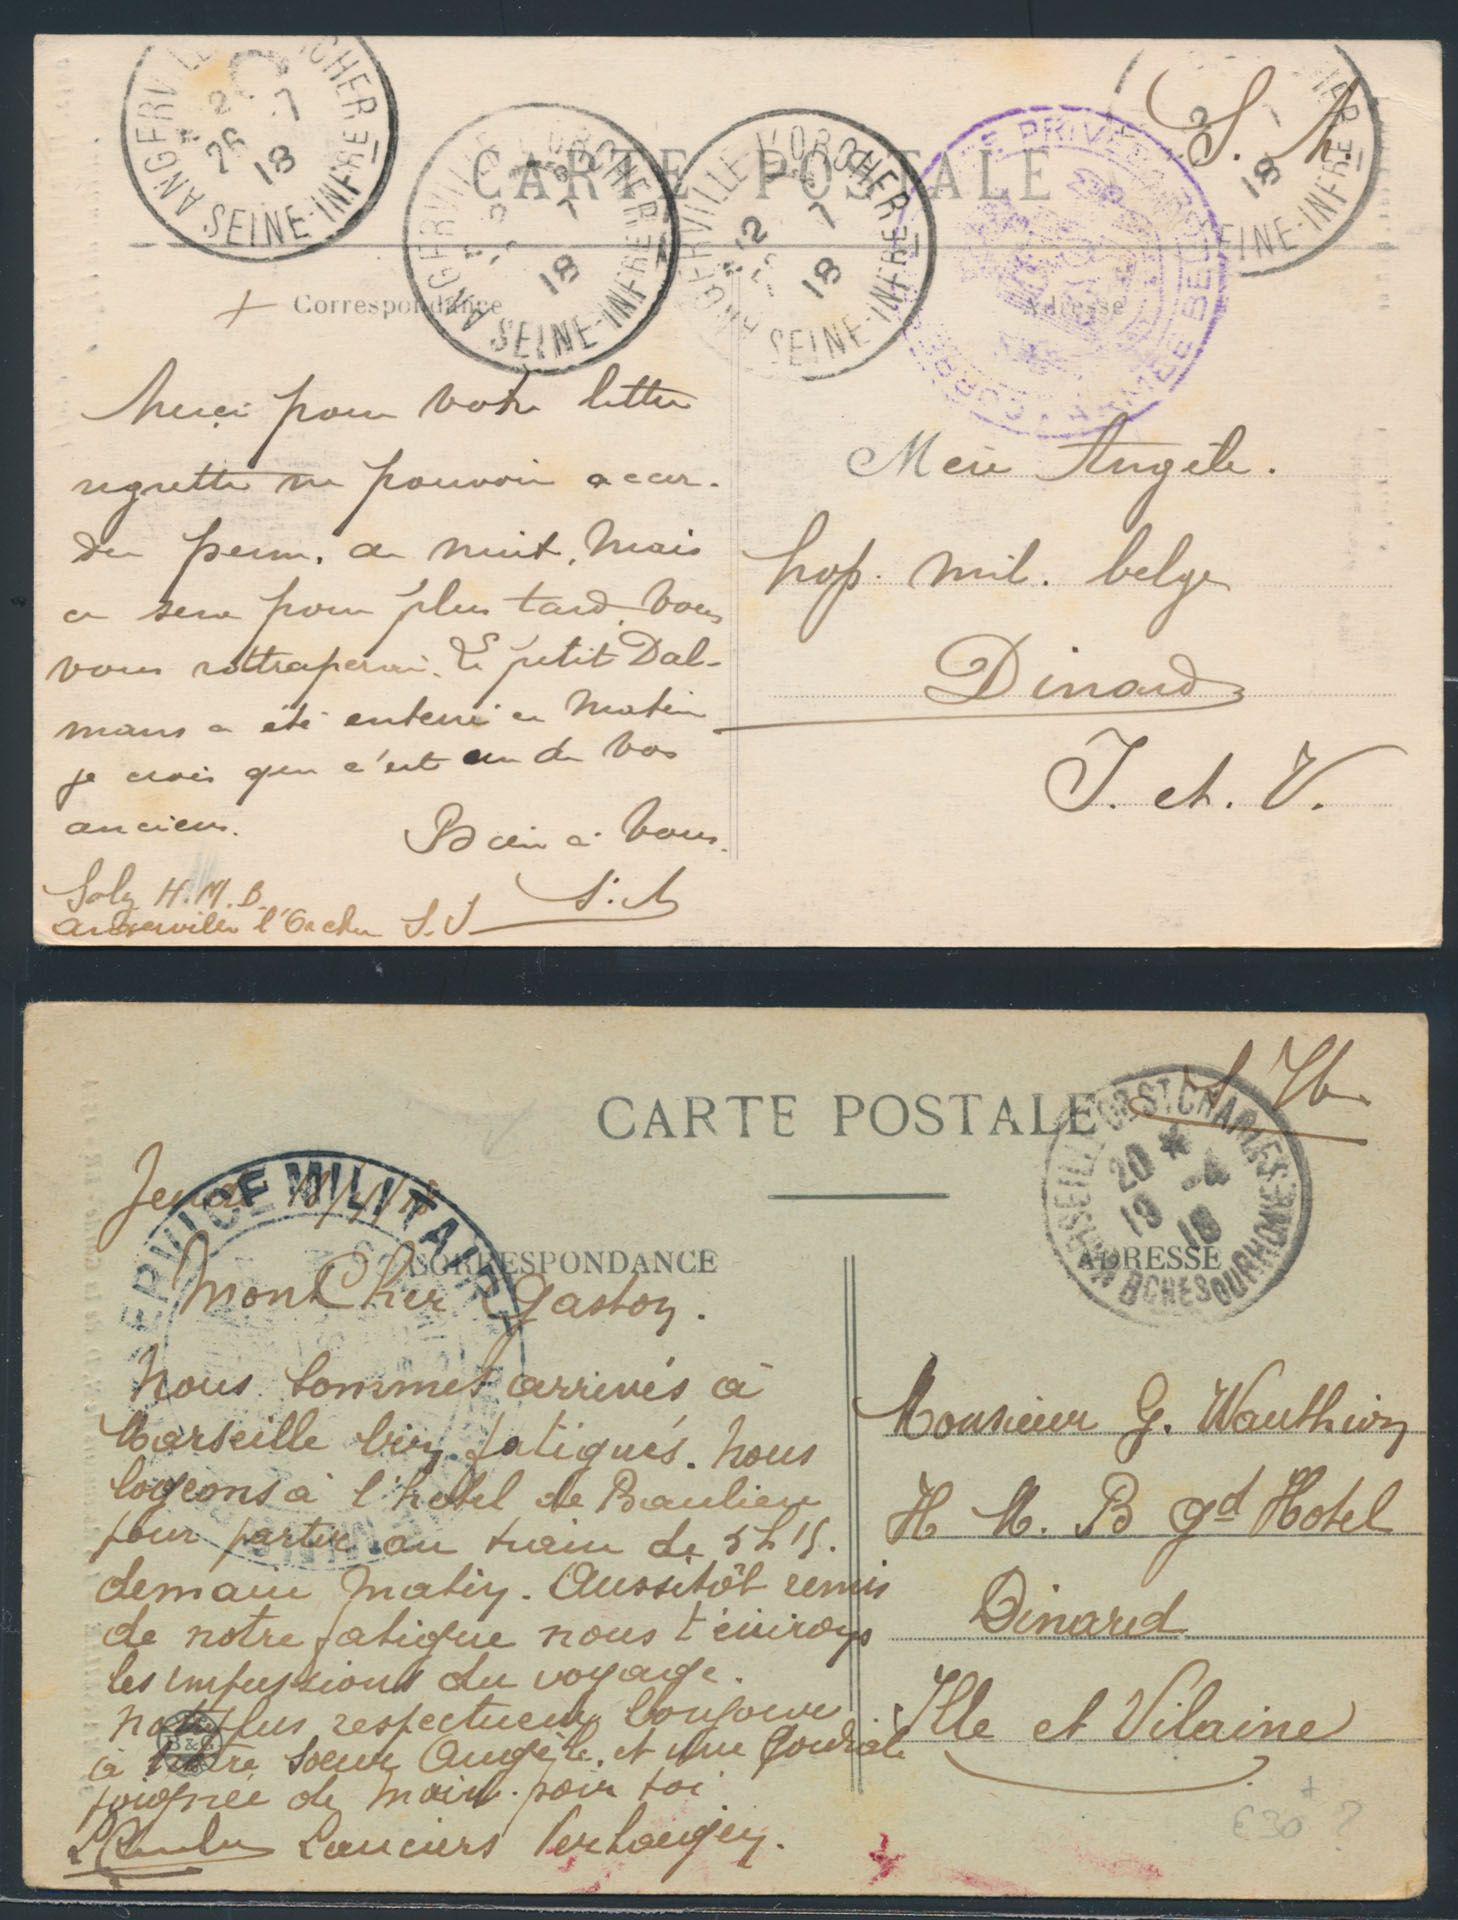 ANGERVILLE L'ORCHER
2
26 -7
18
SEINE-INFRE
ANGERVILLE L'ORCHER
2
7
18
SEINE-INFRE
ANGERVILLE L'ORCHER
12
7
18
SEINE-INFRE
18
SEINE-INFRE
S. M.
CARTE POSTALE
CORRESPONDANCE PRIVEE ARMEE BELGE
Correspondance
Adresse
Merci pour votre lettre
regrette ne pouvoir accor-
der perm. de nuit, mais
ce sera pour plus tard. Vous
vous rattraperez. Le petit Dal-
mans a été enterré ce matin
je crois que c'est un de vos
anciens.
Bien à vous.
H. M. B.
Angerville l'Orcher S. I.
Mère Angèle.
hop. mil. belge
Dinard
I. et. V.
CARTE POSTALE
S M
MARSEILLE GARE ST CHARLES
20 *
19 -4
18
BCHES DU RHONE
SERVICE MILITAIRE
Jeudi 18/4/18
CORRESPONDANCE
ADRESSE
Mon Cher Gaston.
Nous sommes arrivés à
Marseille bien fatigués. Nous
logeons à l'hotel de Beaulieu
pour partir au train de 5 h 15.
demain matin. Aussitôt remis
de notre fatigue nous t'enverrons
les impressions du voyage.
Nos plus respectueux bonjours
à notre soeur Angèle, et une cordiale
poignée de main pour toi
Lanciers
B&G
Monsieur G. Wauthion
H M. B gd Hotel
Dinard
Ille et Vilaine
€30 + ?